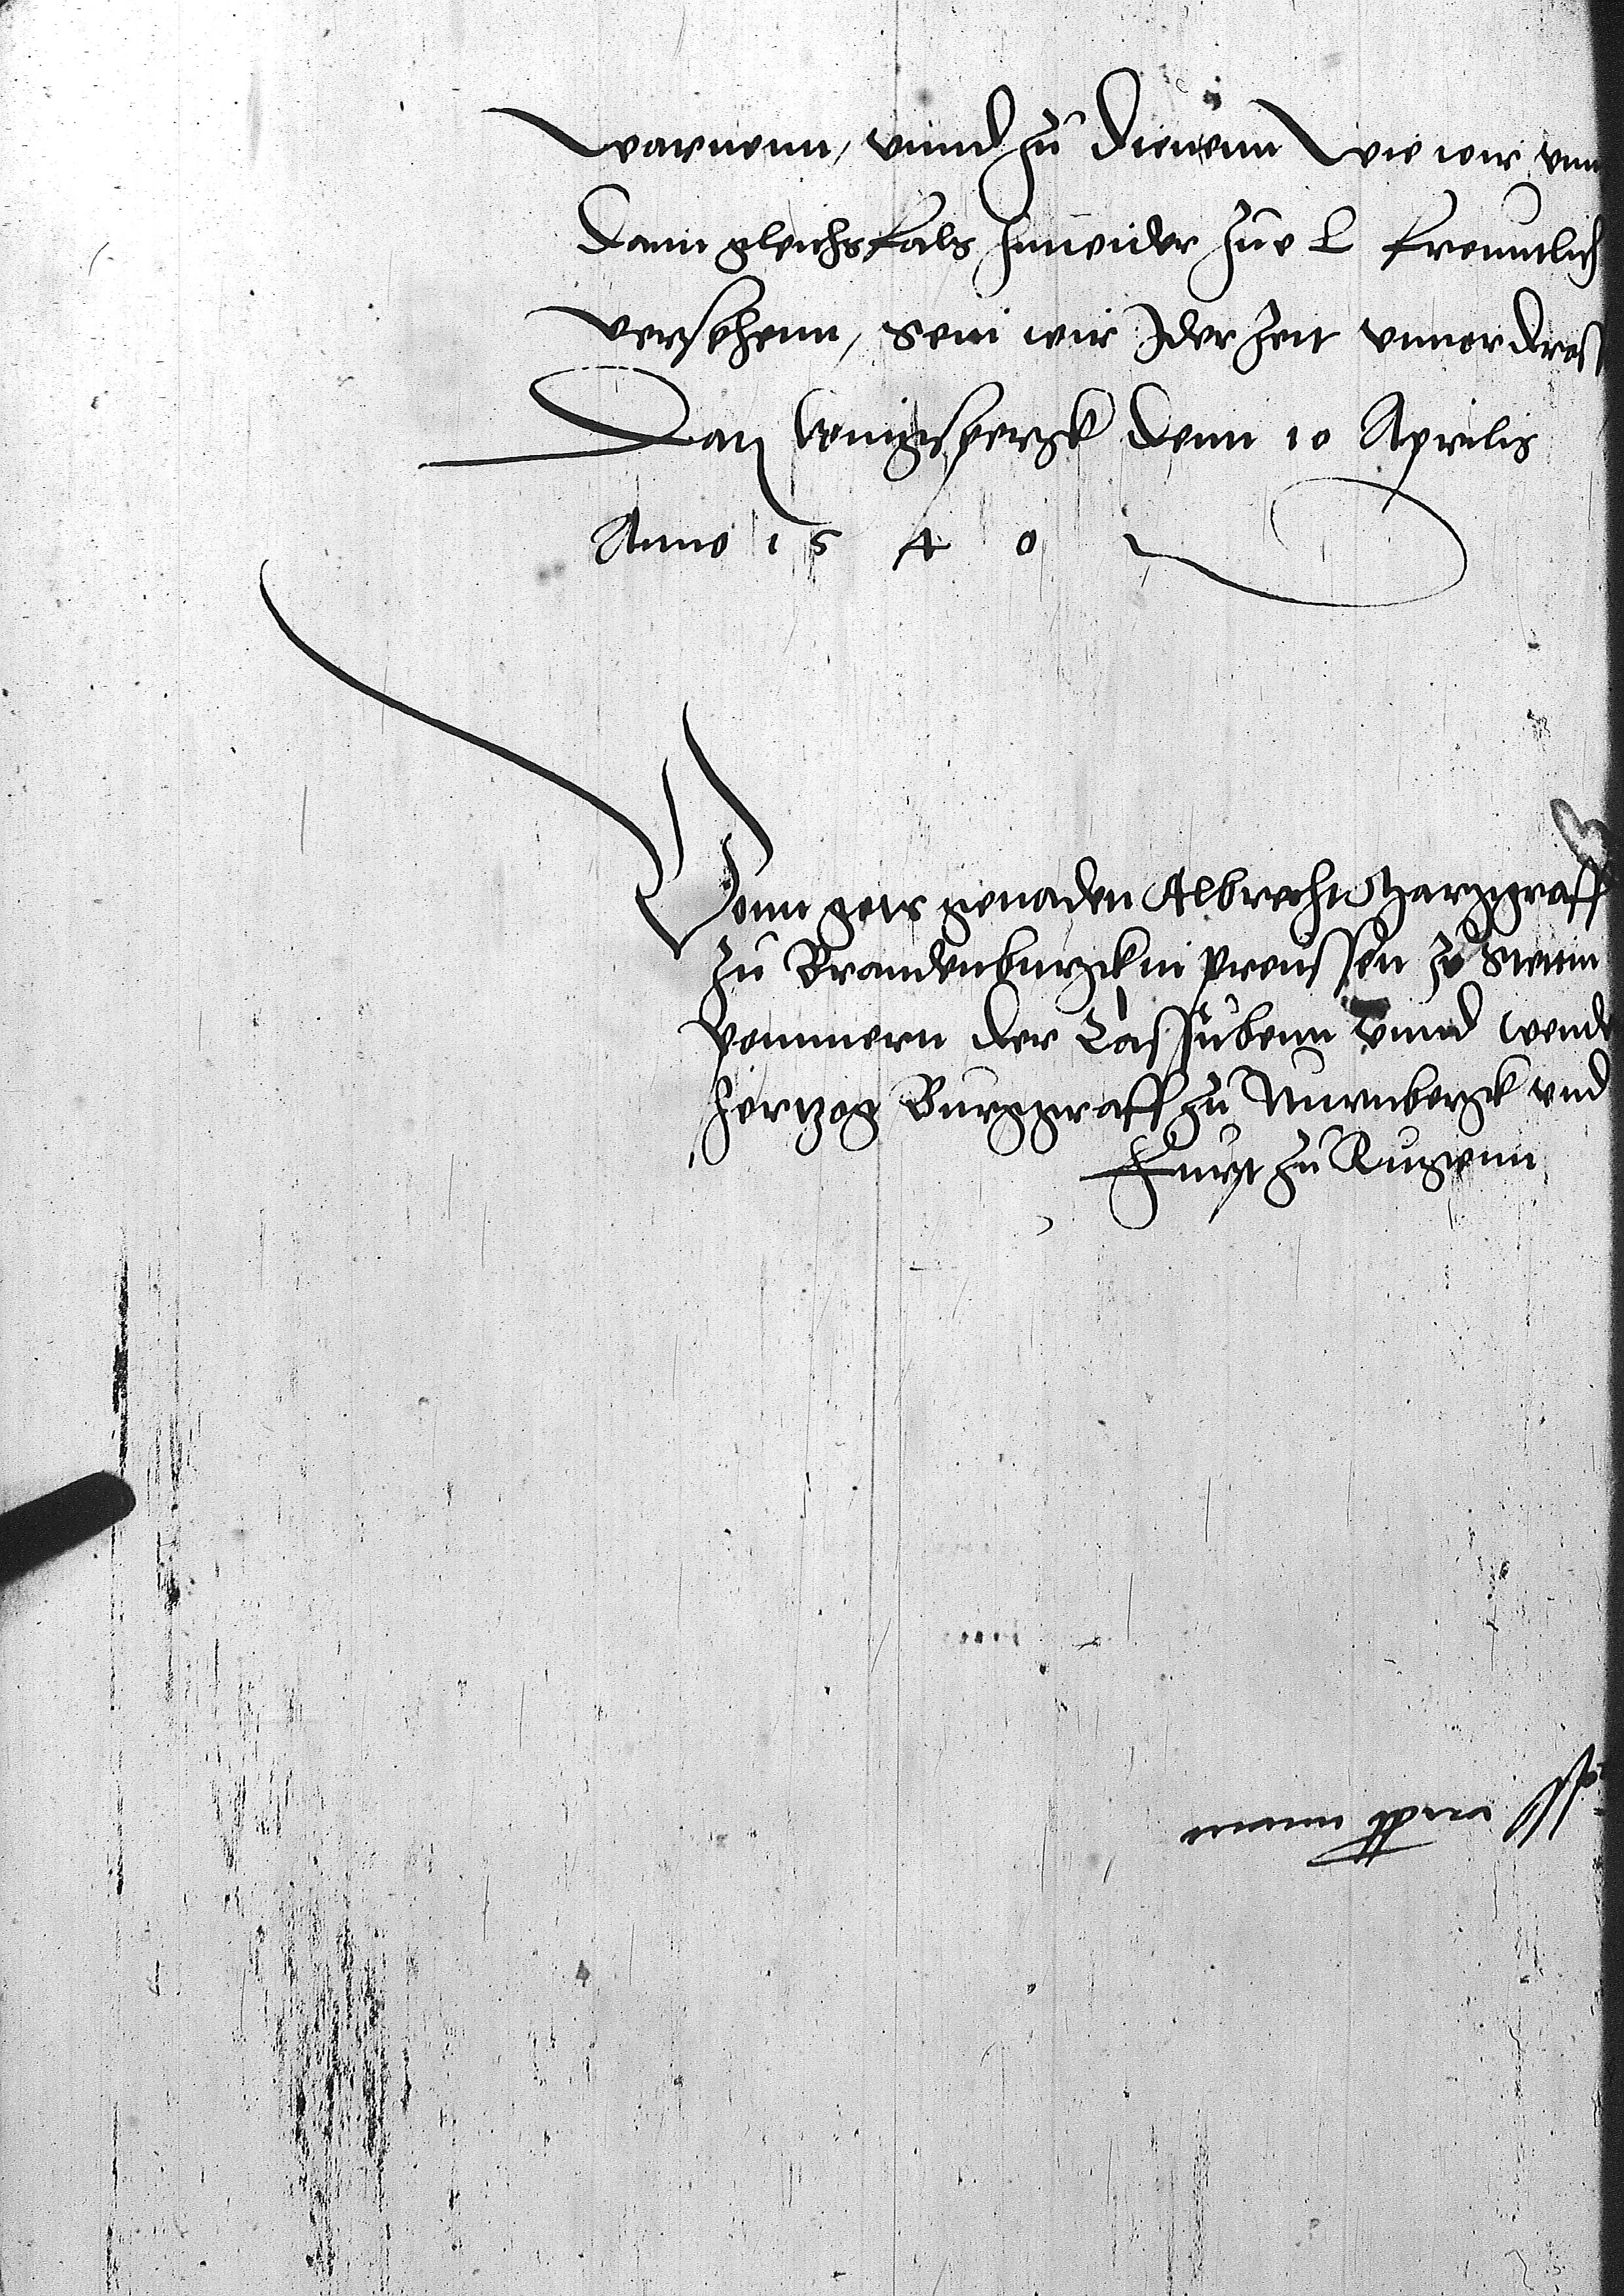 warnenn, vnnd zu dienenn wie wir vnn
dann gleichsfals hinwider zu e L freuntlich
versehenn, sein wir Jderzeit
Dat konigspergk denn 10 Aprilis
Anno 1540
Vonn gots genaden Albrecht Marggraff
zu Brandenburgk in preussen zu Stetin
pommern der Cassubenn vnnd wend
hertzog Burggraff zu Nurmbergk vnd
Furst zu Rugenn
manu